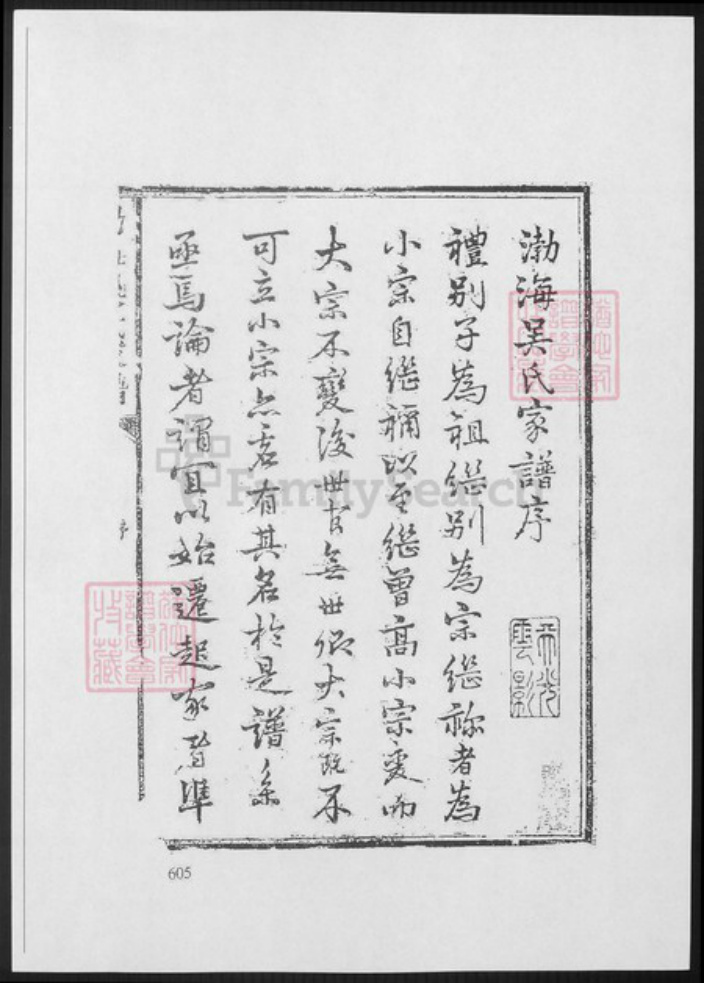 渤海吳氏家譜序
天光雲影
禮別子為祖繼別為宗繼祢者為
小宗自繼禰以至繼曾高小宗變而
大宗不變後世官無世卿大宗既不
可立小宗亦有其名於是譜系
亟焉論者謂宜以始遷起家者準
序
605
FamilySearch
譜學會
特藏